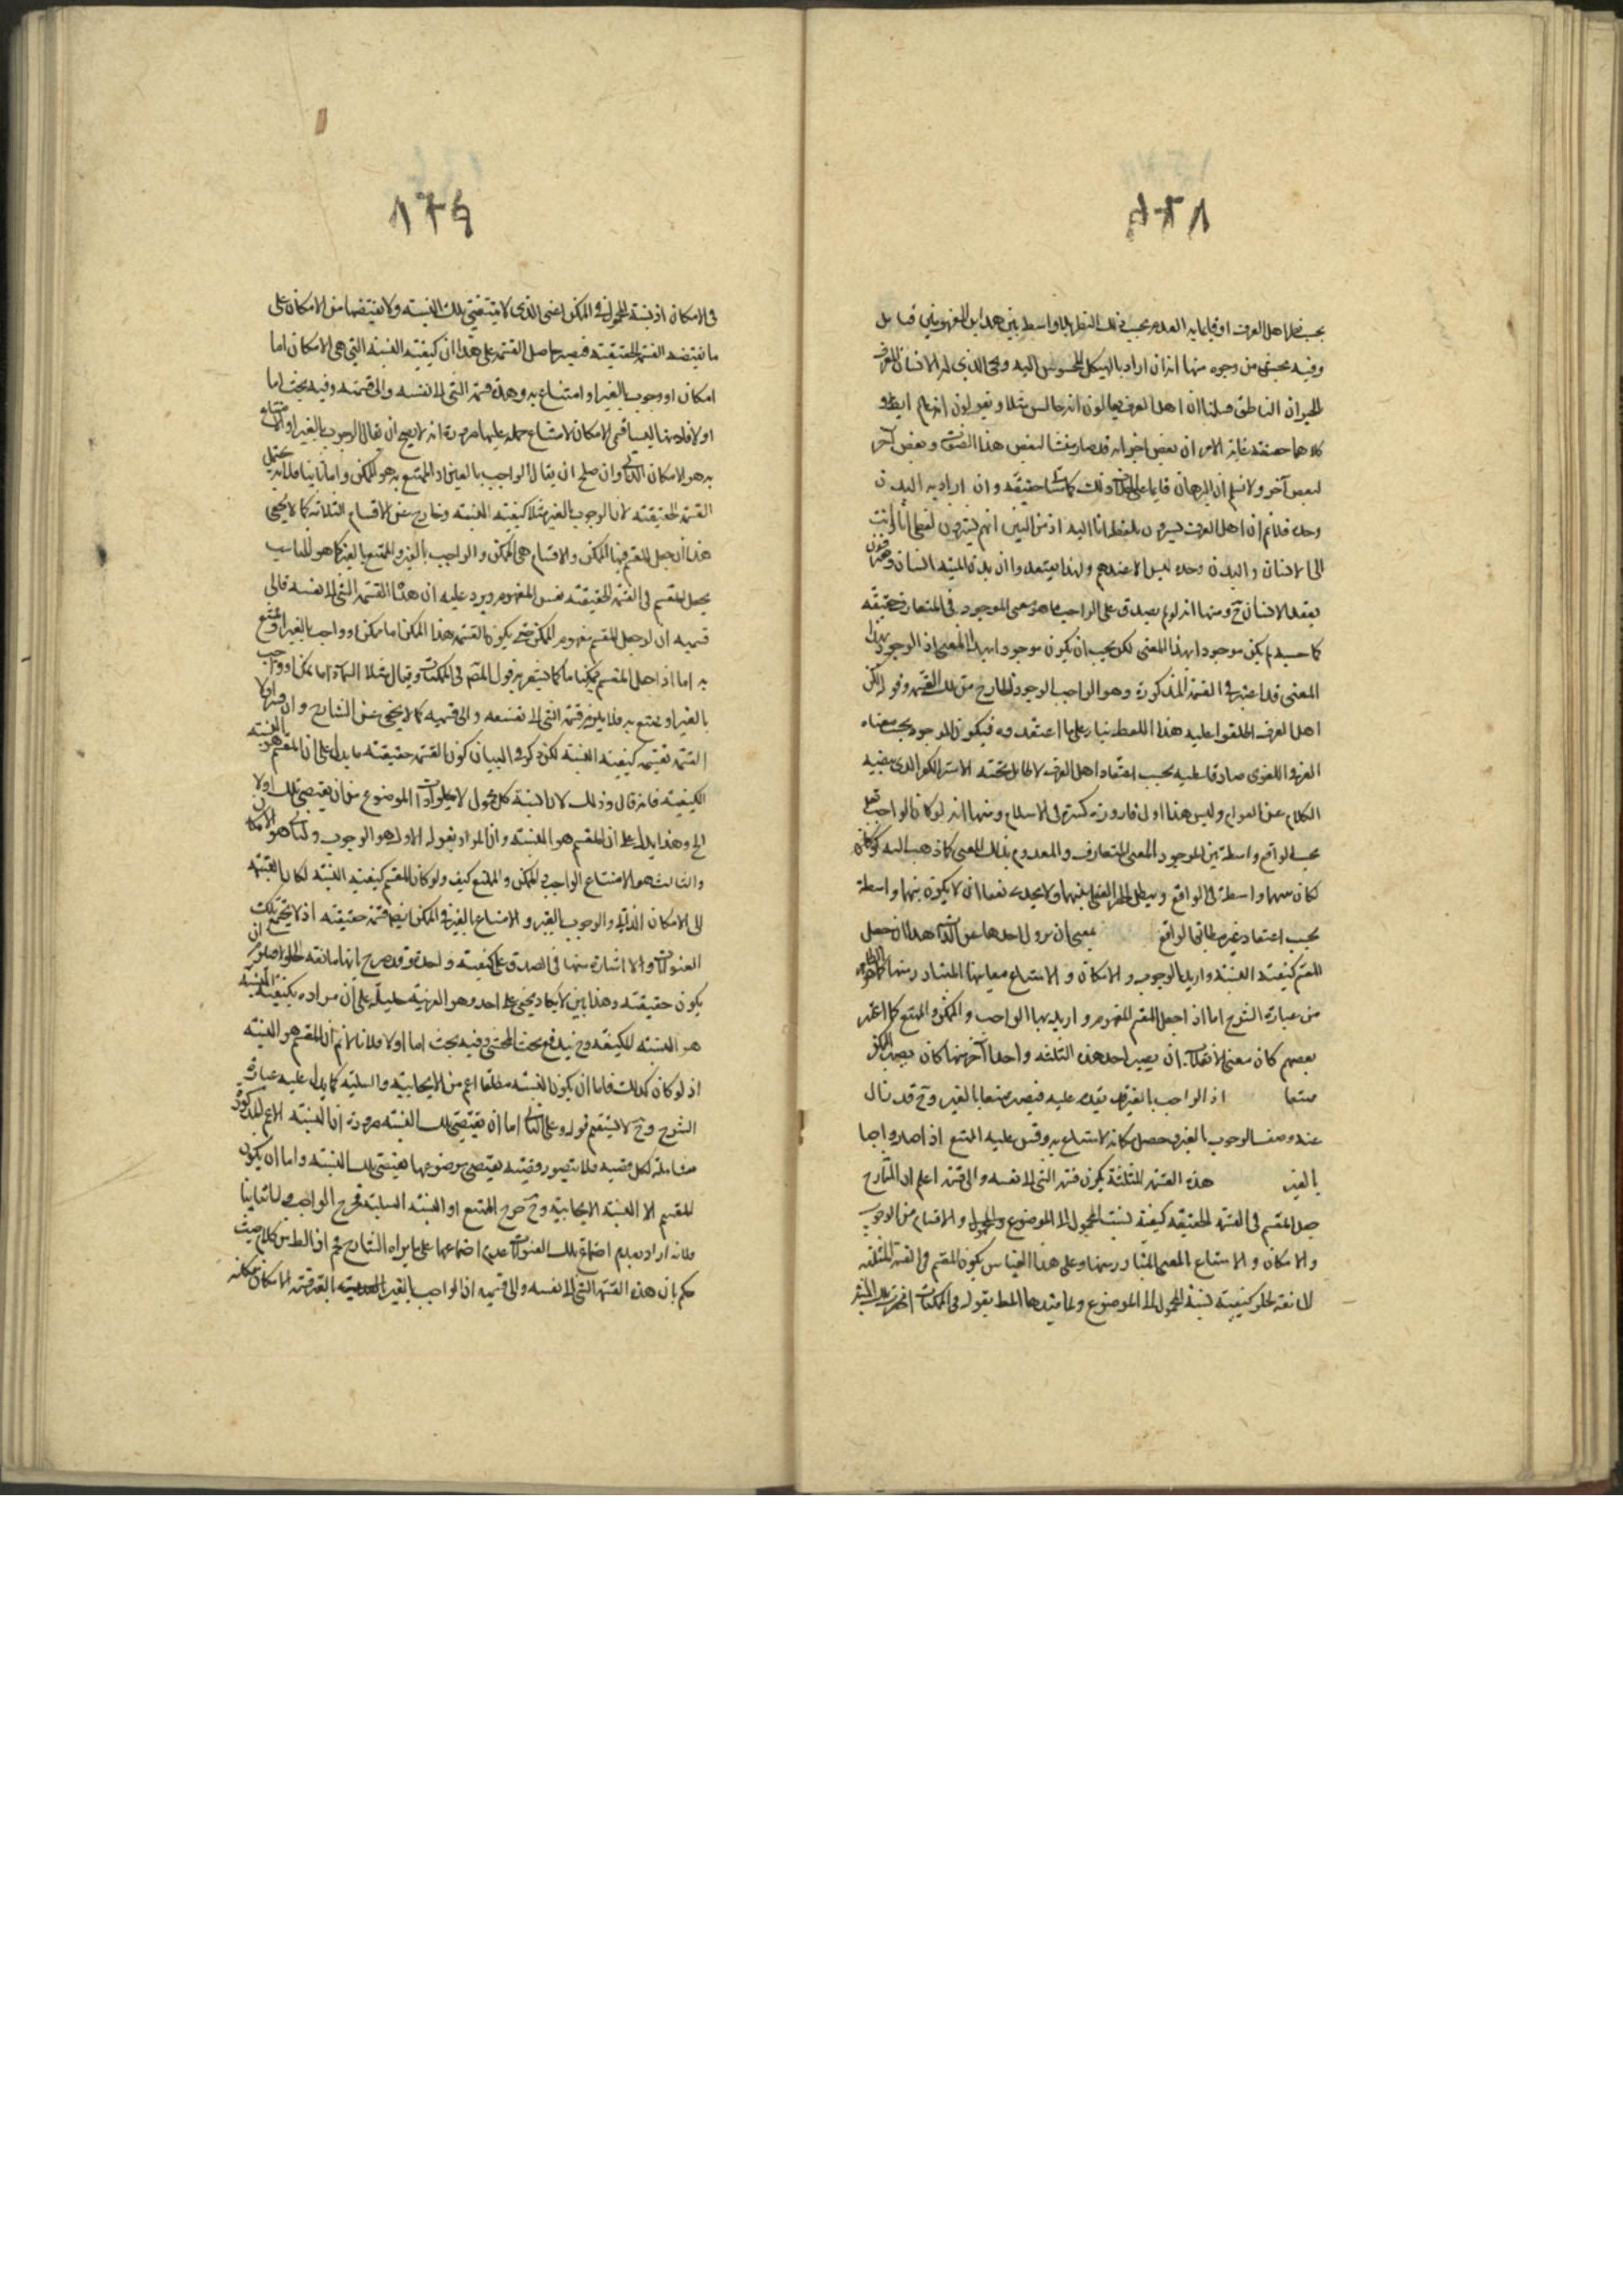 ١٢٨
بحسب نظر اهل العرف او قايما به العدم بحسب ذلك النظر بلا واسطة بين هذين المفهومين قيل
وفيه بحث من وجوه منها انه ان اراد بالهيكل المحسوس البدن وهي الذي له الانسان المعرف
الحيوان الناطق فسلمنا ان اهل العرف يقولون انه جالس مثلا ويقولون انه عالم ايضا و
كلاهما حقيقة غاية الامر ان بعض اجزائه قد صار منشا لبعض هذا الصفات وبعض آخر
لبعض آخر ولا نسلم ان البرهان قايم على ذلك حقيقة وان اراد به البدن
وحده فلا نم ان اهل العرف يشيرون بلفظ انا اليه اذ من البين انهم يشيرون بلفظ انا وانت
الى الانسان والبدن وحده ليس الا عندهم ولهذا يعتقدوا ان بدن الميت انسان
بفقد الانسان ح ومنها انه لو لم يصدق على الواجب ما هو معنى الموجود في المتعارف حقيقة
كما حسبه لم يكن موجودا بهذا المعنى لكن يجب ان يكون موجودا بهذا المعنى اذ الوجود بهذا
المعنى قد اعتبر في القسمة المذكورة وهو الواجب الوجود الخارج من تلك القسمة وقوله لكن
اهل العرف اطلقوا عليه هذا اللفظ بناء على ما اعتقدوه فيكون الموجود بحسب معناه
العرفي اللغوي صادقا عليه بحسب اعتقاد اهل العرف لا طايل تحته الا ستر الكفر الذي يفيد
الكلام عن العوام وليس هذا اول قارورة كسرت في الاسلام ومنها انه لو كان الواجب تعالى
بحسب الواقع واسطة بين الموجود بالمعنى المتعارف والمعدوم بذلك المعنى كما ذهب اليه
لكان بينهما واسطة في الواقع ويبطل الحصر العقلي بينهما ولا يجديه نفعا ان لا يكون بينهما واسطة
بحسب اعتقاد غير مطابق الواقع بمعنى ان يزول احدها عن الذات هذا ان جعل
المقسم كيفية النسبة واريد بالوجوب والامكان والامتناع معانيها المتبادر منها كما هو الظاهر
من عبارة الشرح اما اذا جعل المقسم المفهوم واريد بها الواجب والممكن والممتنع كما اعتبر
بعضهم كان معنى الانقلاب ان يصير احد هذه الثلثة واحدا آخر منها كان يصير الممكن
ممتنعا اذ الواجب بالغير قد يقدم عليه فيصير ممتنعا بالغير وح قد زال
عنه وصف الوجوب بالغير وحصل مكانه الامتناع به وقس عليه الممتنع اذا صار واجبا
بالغير هذه القسمة المثلثة يكون قسمة الشئ الى نفسه والى قسيمه اعلم ان الشارح
جعل المقسم في القسمة الحقيقية كيفية نسبة المحمول الى الموضوع والاقسام من الوجوب
والامكان والامتناع المعنى المتبادر منها وعلى هذا القياس يكون المقسم في القسمة المثلثة
المانعة الخلو كيفية نسبة المحمول الى الموضوع ولما قيدها المط بقوله في الممكنات انحصرت تلك النسبة
١٢٩
في الامكان اذ نسبة المحمول في الممكن اعنى الذي لا يقتضي تلك النسبة ولا نقيضها من الامكان على
ما تقتضيه القسمة الحقيقية فيصير حاصل القسمة على هذا ان كيفية النسبة التي هي الامكان اما
امكان او وجوب بالغير او امتناع به وهذه قسمة الشئ الى نفسه والى قسيمه وفيه بحث اما
اولا فلانها ليسا قسمي الامكان لامتناع حمله عليهما ضرورة انه لا يصح ان يقال الوجوب بالغير او الامتناع
به هو الامكان الذاتي وان صلح ان يقال الواجب بالغير او الممتنع به هو الممكن واما ثانيا فلانه يختل
القسمة الحقيقية لان الوجوب بالغير مثلا كيفية النسبة وخارج عن الاقسام الثلاثة كما لا يخفى
هذا ان جعل المقسم فيها الممكن والاقسام هي الممكن والواجب بالغير والممتنع بالغير كما هو المناسب
بجعل المقسم في القسمة الحقيقية نفس المفهوم ويرد عليه ان هذه القسمة الشئ الى نفسه والى
قسيمه ان لو جعل المقسم مفهوم الممكن حتى يكون القسمة هذا الممكن اما ممكن او واجب بالغير او ممتنع
به اما اذا جعل المقسم ممكنا ما كما يشعر به قول المقسم في الممكنات ويقال مثلا السماء اما ممكن او واجب
بالغير او ممتنع به فلا يلزم قسمة الشئ الى نفسه والى قسيمه كما لا يخفى عن الشارح وان جعل اولا
القسمة تقسيم كيفية النسبة لكن ذكر في البيان كون القسمة حقيقية ما يدل على ان المقسم هو النسبة
الكيفية فانه قال وذلك لان نسبة كل محمول لا يخلو ذات الموضوع من ان يقتضي تلك اولا
الخ وهذا يدل على ان المقسم هو النسبة وان المراد بقوله الاول هو الوجوب والثاني هو الامكان
والثالث هو الامتناع الواجب والممكن والممتنع كيف ولو كان المقسم كيفية النسبة لكان القسمة
الى الامكان الذاتي والوجوب بالغير والامتناع بالغير في الممكن ايضا قسمة حقيقية اذ لا يجتمع تلك
العنوانات والاشارة منها في الصدق على كيفية واحدة وقد صرح بانها مانعة الخلو
يكون حقيقية وهذا بين لا يكاد يخفى على احد وهو القرينة الجلية على ان مراده بكيفية النسبة
هو النسبة المكيفة وح يندفع بحث المحشى وفيه بحث اما اولا فلانا لا نم ان المقسم هو النسبة
اذ لو كان كذلك فاما ان يكون النسبة مطلقا اعم من الايجابية والسلبية كما يدل عليه عبارة
الشرح وح لا يستقيم قوله وعلى الثاني اما ان يقتضي سلب النسبة ضرورة ان النسبة الاعم المذكورة
شاملة لكل قضية فلا يتصور قضية يقتضي موضوعها نقيض تلك النسبة واما ان يكون
المقسم الا النسبة الايجابية وح خرج الممتنع او النسبة السلبية فخرج الواجب واما ثانيا
فلانه اراد بعدم اجتماع تلك العنوانات عدم اجتماعها على ما يراه الشارح فم اذ الظ من كلام حيث
حكم بان هذه القسمة الشئ الى نفسه والى قسيمه ان الواجب بالغير القسمة الامكان